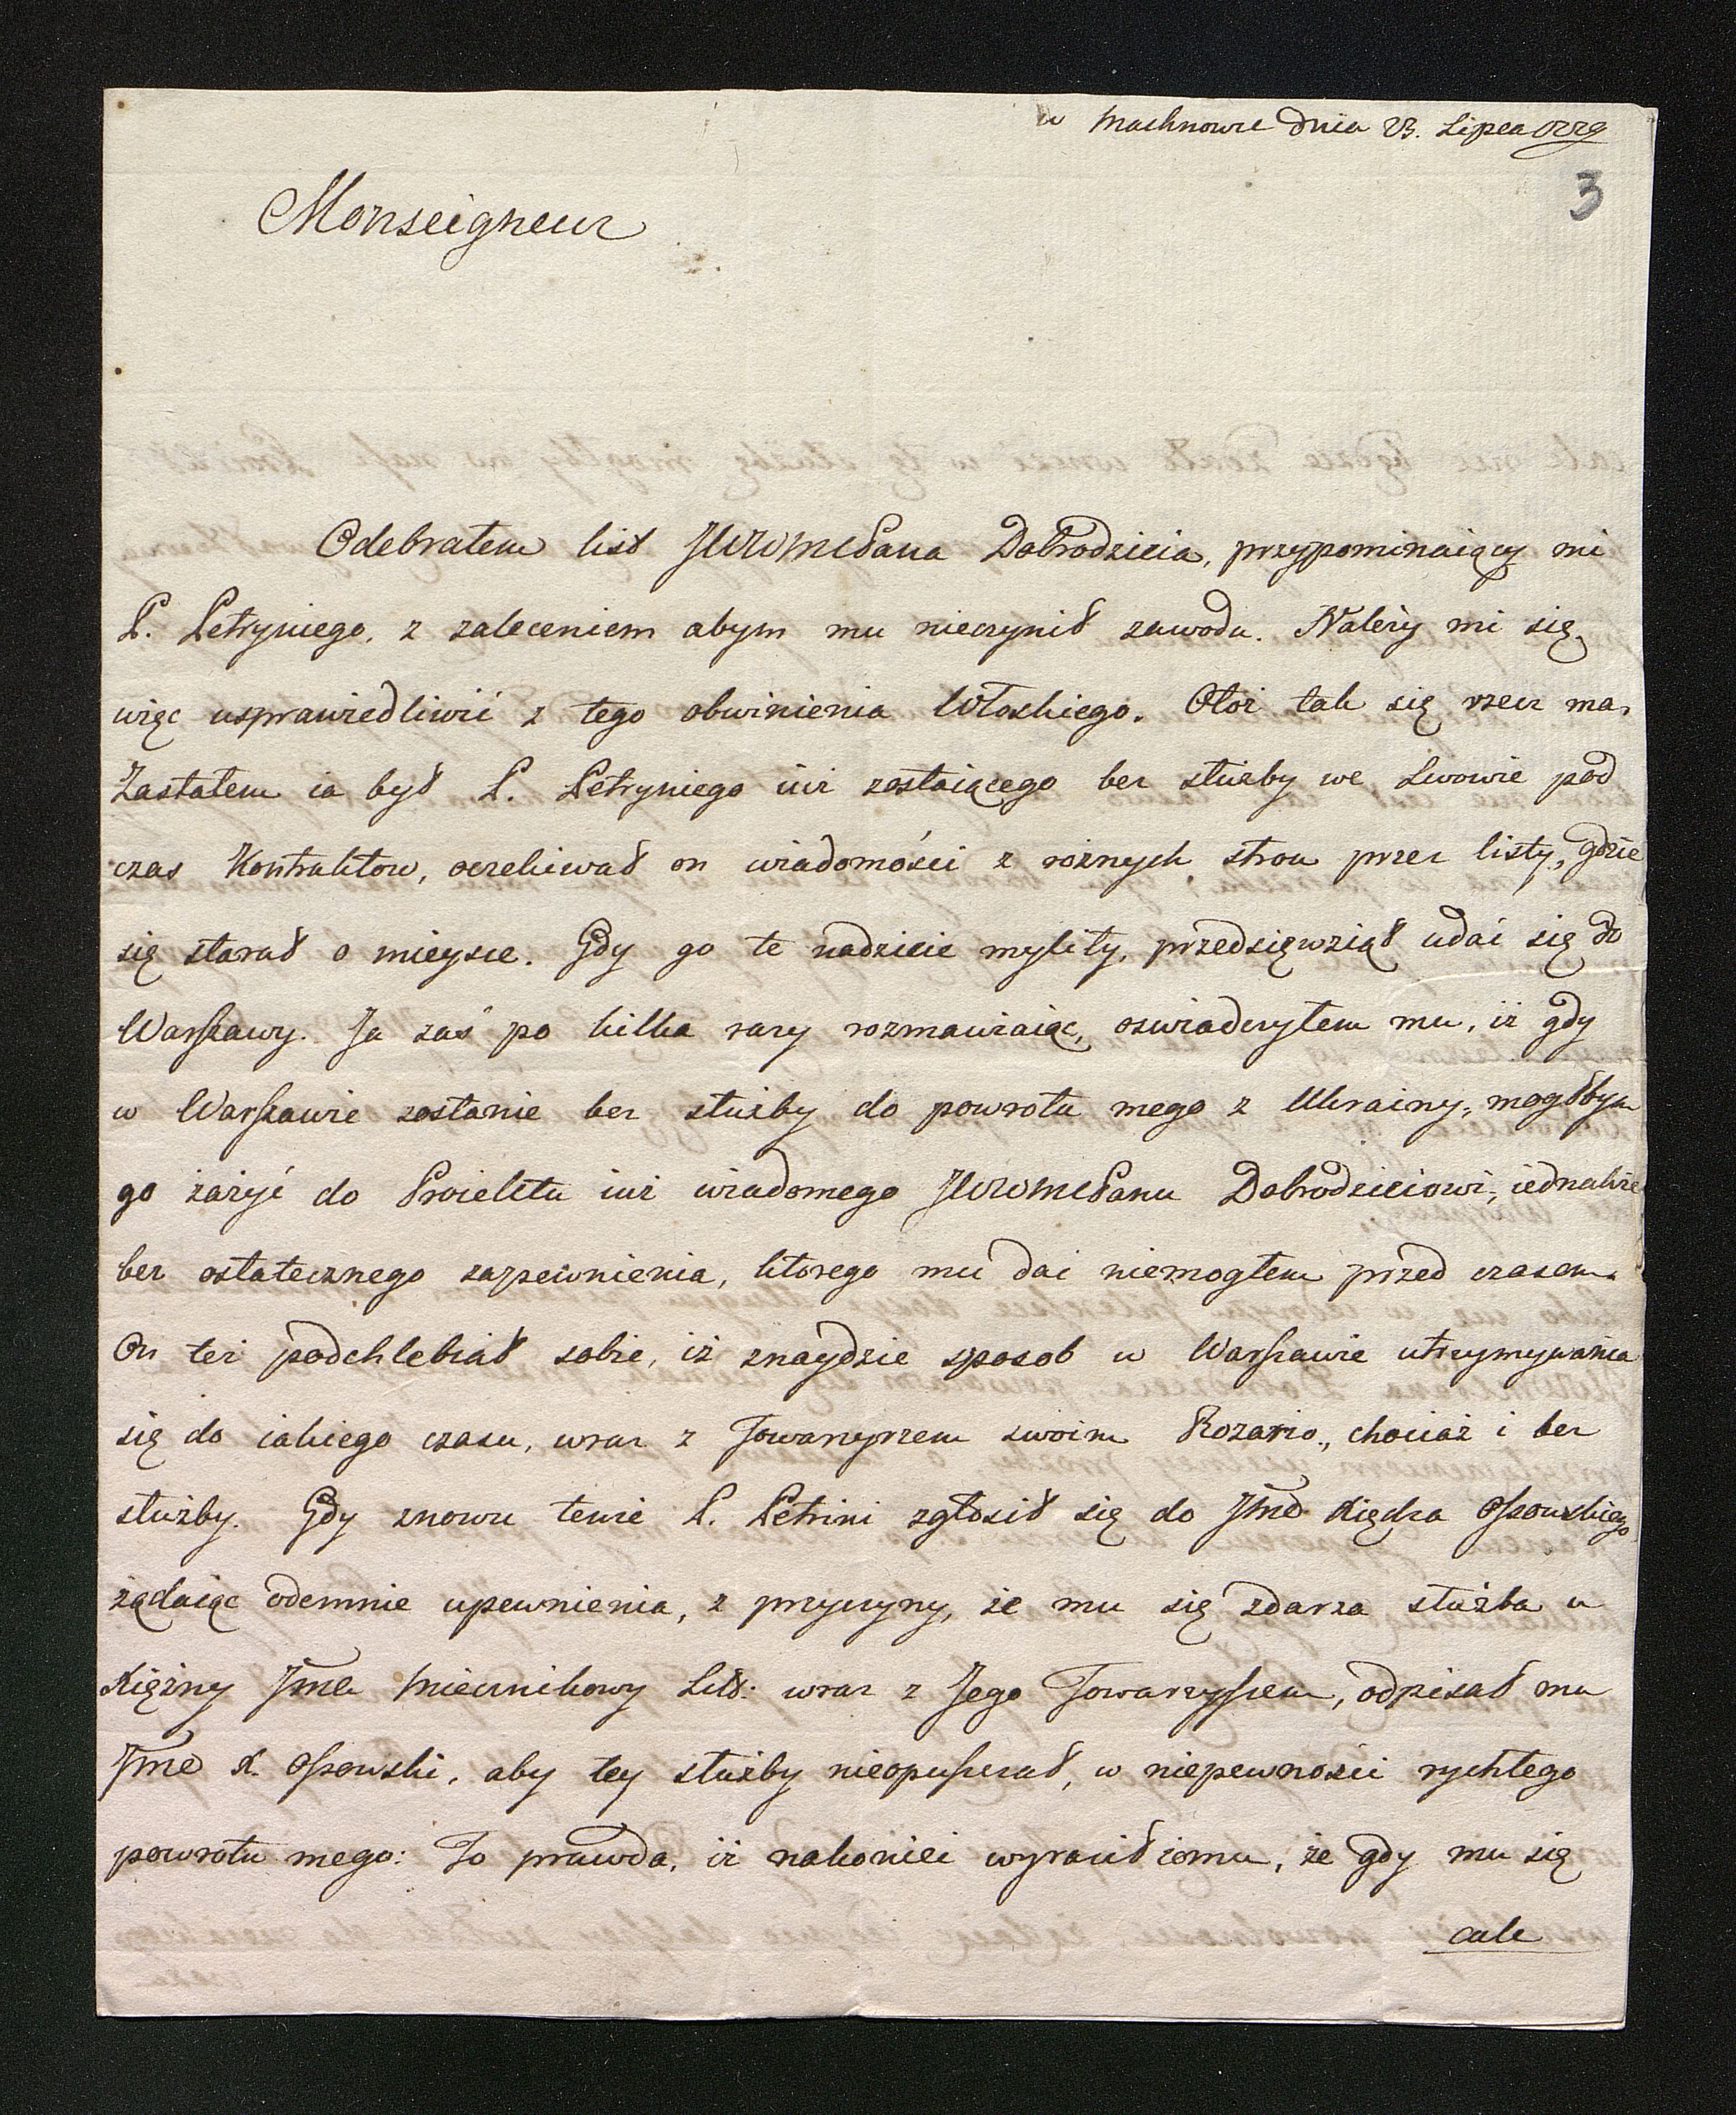 w Machnowce dnia 23. Lipca 1779
3
Monseigneur
Odebrałem list JWWMPana Dobrodzieia, przypominaiący mi
P. Petryniego, z zaleceniem abym mu nieczynił zawodu. Należy mi się
więc usprawiedliwić z tego obwinienia Włoskiego. Otoż tak się rzecz ma.
Zastałem ia był P. Petryniego iuż zostaiącego bez służby we Lwowie pod
czas Kontraktow, oczekiwał on wiadomości z rożnych stron przez listy, gdzie
się starał o mieysce. Gdy go te nadzieie myliły, przedsięwziął udać się do
Warszawy. Ja zaś po kilka razy rozmawiaiąc, oswiadczyłem mu, iż gdy
w Warszawie zostanie bez służby do powrotu mego z Ukrainy, mogłbym
go zażyć do Proiektu iuż wiadomego JWWMPanu Dobrodzieiowi, iednakże
bez ostatecznego zazpewnienia, ktorego mu dać niemogłem przed czasem.
On też podchlebiał sobie, iż znaydzie sposob w Warszawie utrzymywania
się do iakiego czasu, wraz z Towarzyszem swoim Rozario, chociaż i bez
służby. Gdy znowu tenże P. Petrini zgłosił się do Jmć Xiędza Ossowskiego
żądaiąc odemnie upewnienia, z przyczyny, że mu się zdarza służba u
Xiężny Jmci Miecznikowy Litt: wraz z Jego Towarzyszem, odpisał mu
Jmć X. Ossowski, aby tey służby nieopuszczał, w niepewności rychłego
powrotu mego: To prawda, iż nakoniec wyraził iemu, że gdy mu się
cale